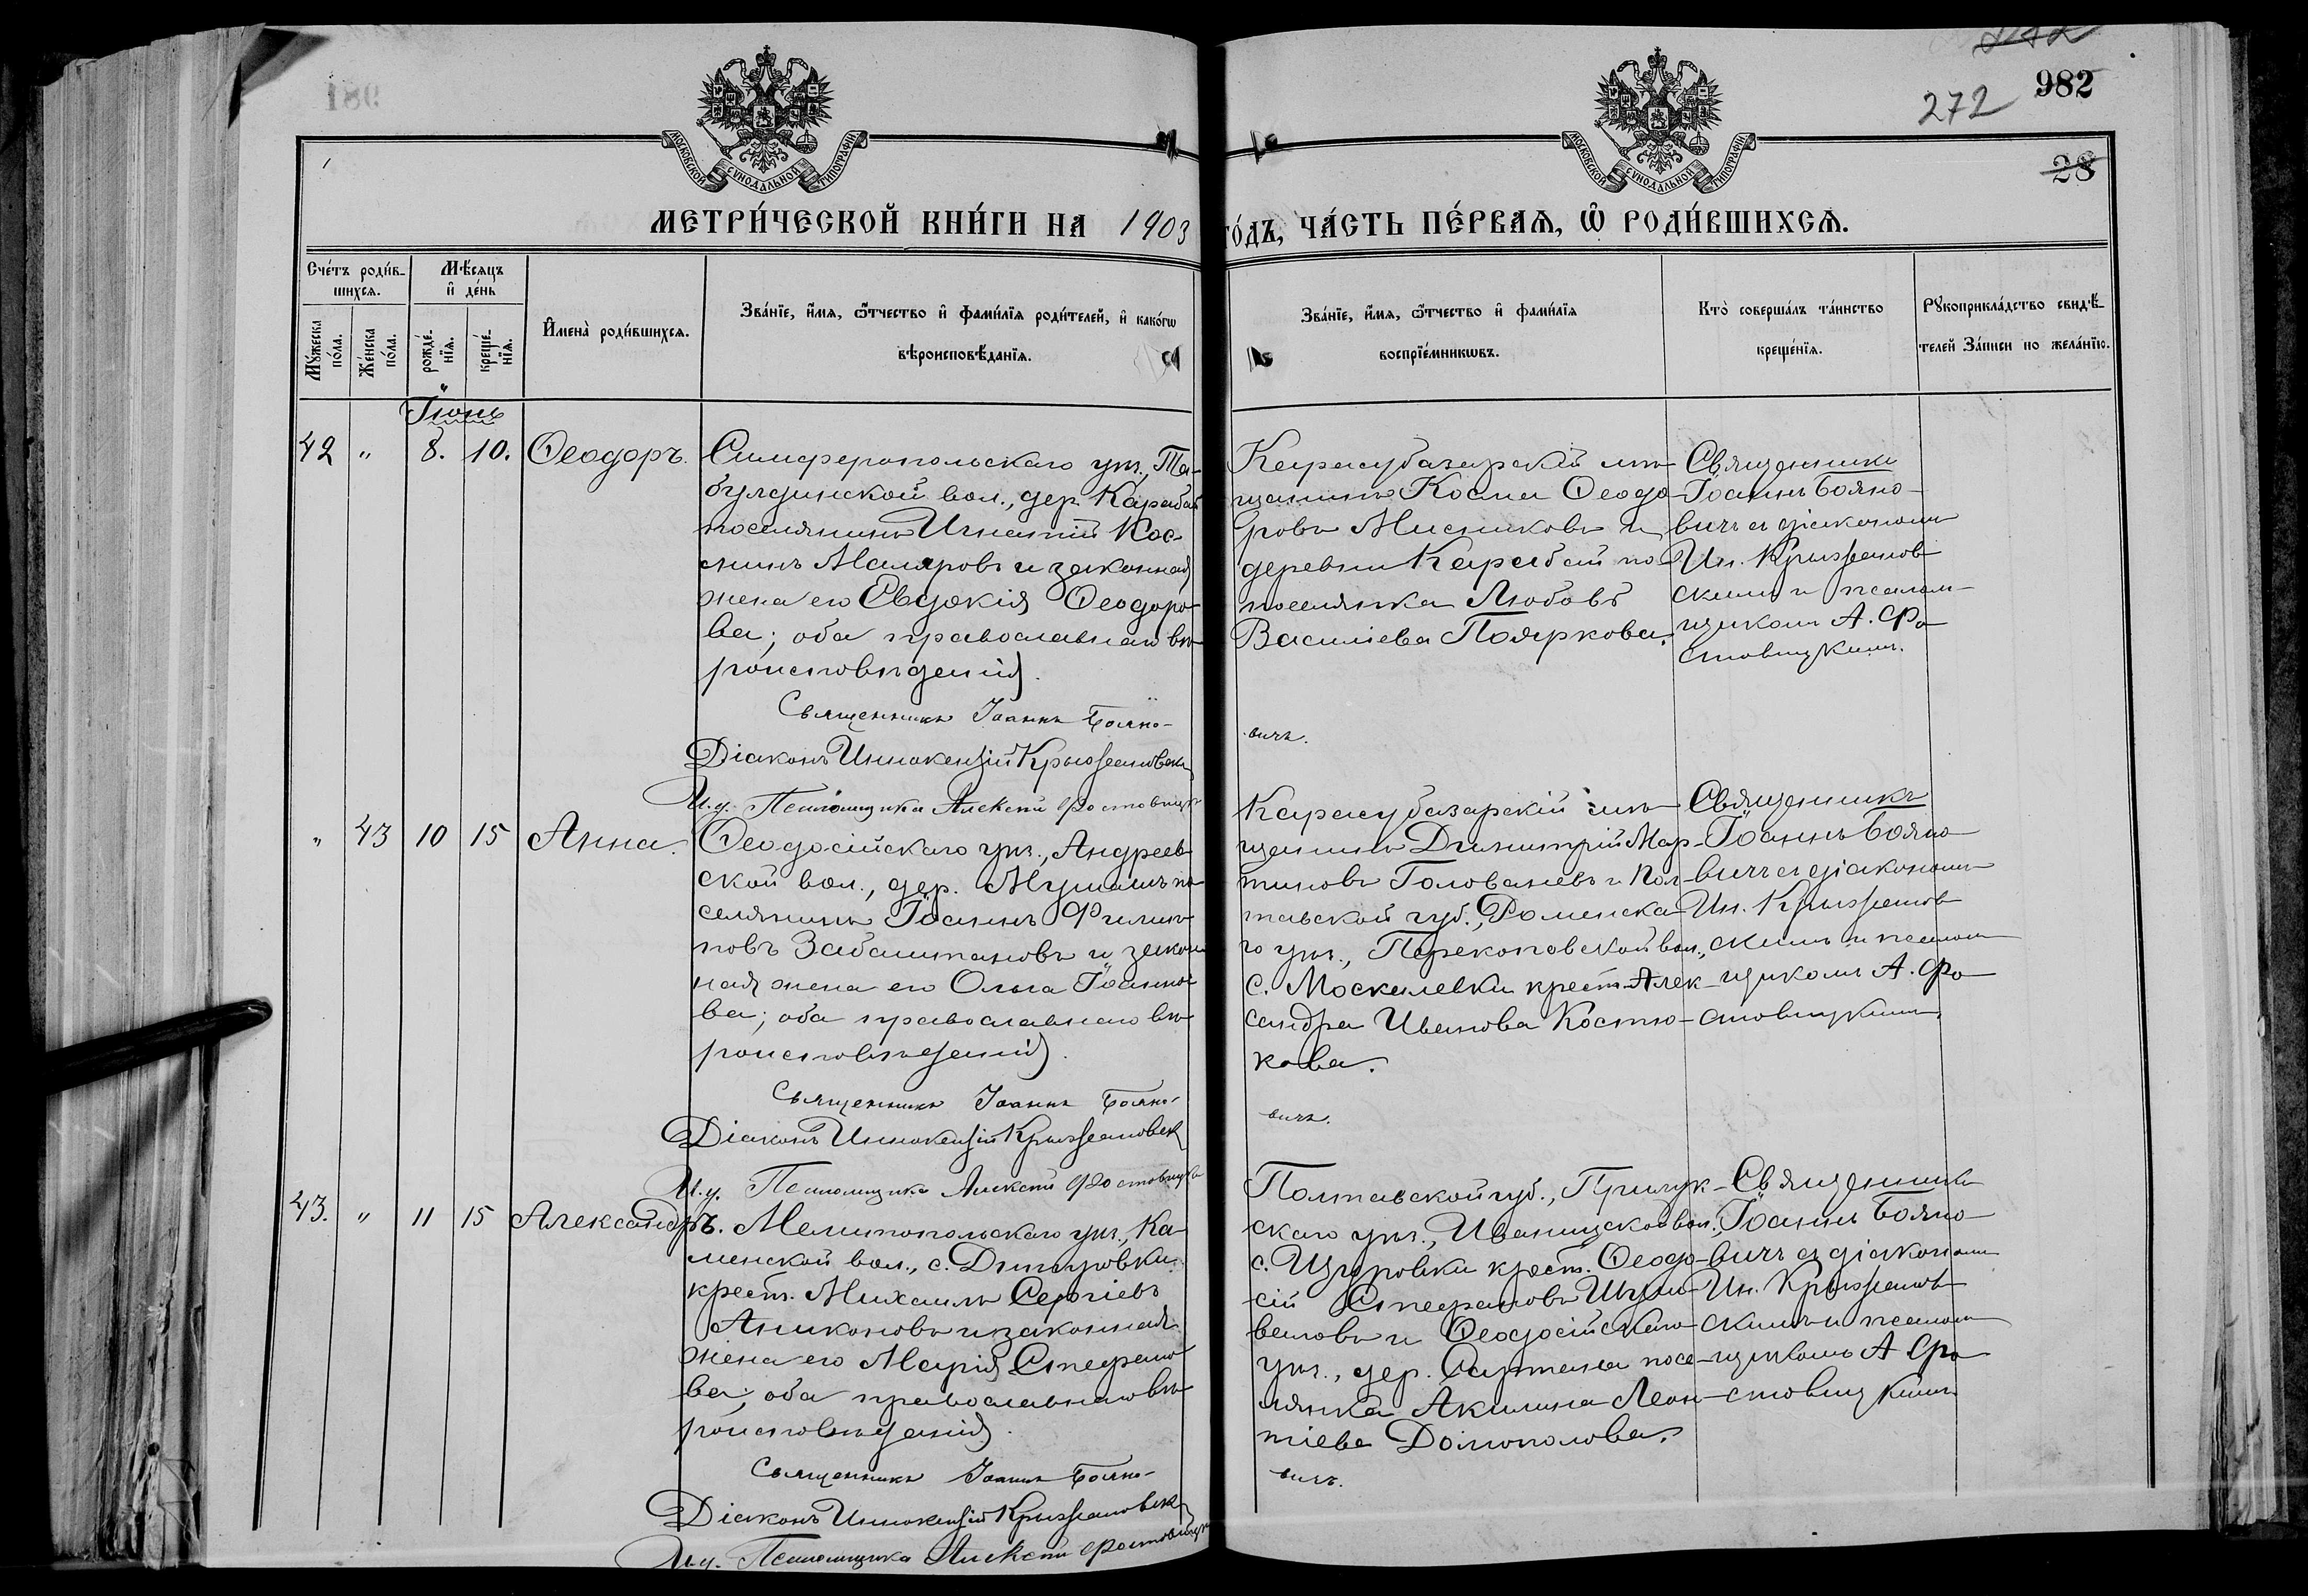 272
982
28
МОСКОВСКОЙ СУНОДАЛЬНОЙ ТИПОГРАФІИ
МОСКОВСКОЙ СУНОДАЛЬНОЙ ТИПОГРАФІИ
МЕТРИ́ЧЕСКОЙ КНИ́ГИ НА 1903 ГО́ДЪ, ЧА́СТЬ ПЕ́РВАѦ, Ѽ РОДИ́ВШИХСѦ.
Сче́тъ роди́в-
шихсѧ.
Мѣ́сѧцъ
и҆ де́нь
Мꙋ́жеска
по́ла.
Же́нска
по́ла.
рожде́-
нїѧ.
креще́-
нїѧ.
И҆мена̀ роди́вшихсѧ.
Зва́нїе, и҆́мѧ, ѻ҆́тчество и҆ фами́лїѧ роди́телей, и҆ како́гѡ
вѣроисповѣ́данїѧ.
Зва́нїе, и҆́мѧ, ѻ҆́тчество и҆ фами́лїѧ
воспрїе́мникѡвъ.
Кто̀ соверша́лъ та́инство
креще́нїѧ.
Рꙋкоприкла́дство свидѣ́-
телей За́писи по жела́нїю.
Іюнь
42 " 8. 10. Ѳеодоръ.
Симферопольскаго уѣз., Та-
булдинской вол., дер. Карабай
поселянинъ Игнатій Кос-
минъ Маляровъ и законная
жена его Евдокія Ѳеодоро-
ва; оба православнаго вѣ-
роисповѣданія.
Священникъ Іоаннъ Бояно-
вичъ.
Діаконъ Иннокентій Крыжановск
И.д. Псаломщика Алексѣй Ростовцк
Карасубазарскій мѣ-
щанинъ Косма Ѳеодо-
ровъ Мисниковъ и
деревни Карабай по-
поселянка Любовь
Василіева Пояркова.
Священникъ
Іоаннъ Бояно-
вичъ съ діакономъ
Ин. Крыжанов-
скимъ и псалом-
щикомъ А. Ро-
стовцкимъ.
" 43 10 15 Анна.
Ѳеодосійскаго уѣз., Андреев-
ской вол., дер. по-
селянинъ Іоаннъ Филип-
повъ Забаштановъ и закон-
ная жена его Ольга Іоанно-
ва; оба православнаго вѣ-
роисповѣданія.
Священникъ Іоаннъ Бояно-
вичъ.
Діаконъ Иннокентій Крыжановск
И.д. Псаломщика Алексѣй Ростовцк
Карасубазарскій мѣ-
щанинъ Димитрій Мар-
тиновъ Голованевъ и Пол-
тавской губ., Роменска-
го уѣз., Перекоповской вол.,
с. Москалевки крест. Алек-
сандра Иванова Костю-
кова.
Священникъ
Іоаннъ Бояно-
вичъ съ діакономъ
Ин. Крыжанов-
скимъ и псалом-
щикомъ А. Ро-
стовцкимъ.
43. " 11 15 Александръ.
Мелитопольскаго уѣз., Ка-
менской вол., с.
крест. Михаилъ Сергіевъ
Аниконовъ и законная
жена его Марія Стефано-
ва; оба православнаго вѣ-
роисповѣданія.
Священникъ Іоаннъ Бояно-
вичъ.
Діаконъ Иннокентій Крыжановск
И.д. Псаломщика Алексѣй Ростовцк
Полтавской губ., Прилук-
скаго уѣз., Иваницкой вол.,
с. Щуровки крест. Ѳеодо-
сій Стефановъ
и Ѳеодосійскаго
уѣз., дер. Сартана посе-
лянка Акилина Леон-
тіева Домополова.
Священникъ
Іоаннъ Бояно-
вичъ съ діакономъ
Ин. Крыжанов-
скимъ и псалом-
щикомъ А Ро-
стовцкимъ